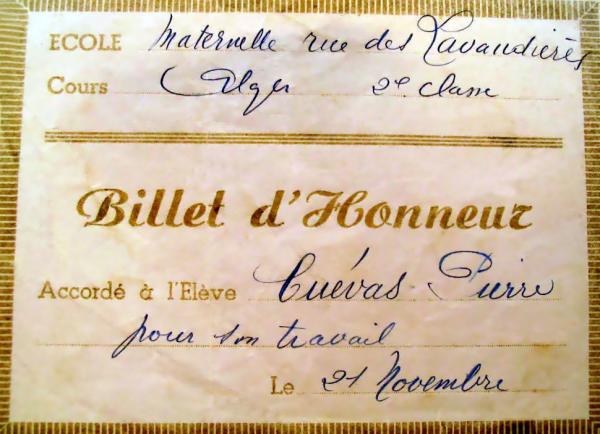 ECOLE Maternelle rue des Lavandières
Cours Alger 2e classe
Billet d'Honneur
Accordé à l'Elève Cuévas Pierre
pour son travail
Le 21 Novembre